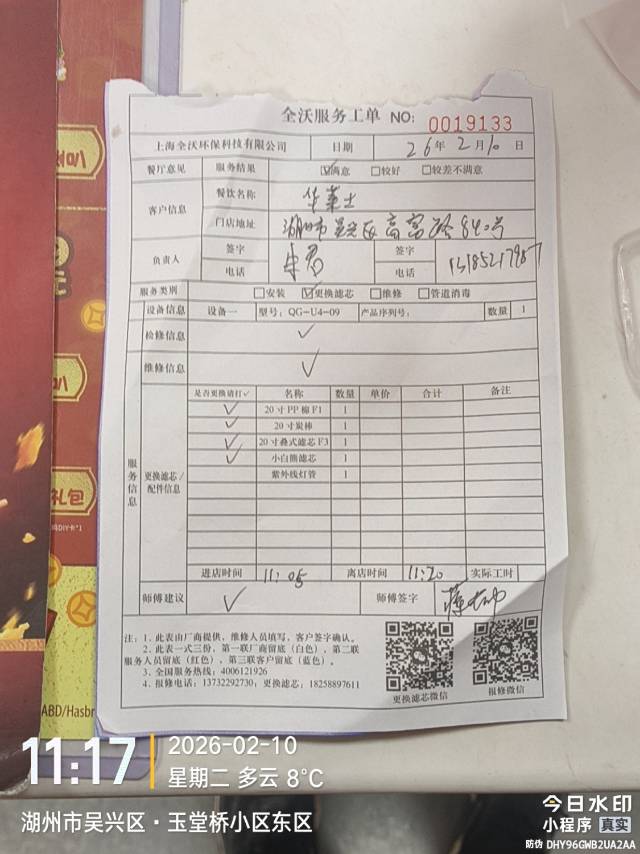 全沃服务工单 NO: 0019133
上海全沃环保科技有限公司 日期 26年2月10日
餐厅意见 服务结果 ☑满意 □较好 □较差不满意
客户信息 餐饮名称 华莱士
门店地址 湖州市吴兴区高富路840号
负责人 签字 朱勇 签字
电话 电话
服务类别 □安装 ☑更换滤芯 □维修 □管道消毒
设备信息 设备一 型号: QG-U4-09 产品序列号: 数量 1
检修信息 ✓
维修信息 ✓
服务信息
更换滤芯/配件信息
是否更换请打✓ 名称 数量 单价 合计 备注
✓ 20寸PP棉F1 1
✓ 20寸炭棒 1
✓ 20寸叠式滤芯F3 1
✓ 小白熊滤芯 1
紫外线灯管 1
进店时间 11:05 离店时间 11:20 实际工时
师傅建议 ✓ 师傅签字
注: 1. 此表由厂商提供, 维修人员填写, 客户签字确认。
2. 此表一式三份, 第一联厂商留底(白色), 第二联
服务人员留底(红色), 第三联客户留底(蓝色)。
3. 全国服务热线: 4006121926
4. 报修电话: 13732292730; 更换滤芯: 18258897611
更换滤芯微信 报修微信
喇叭
喇叭
礼包
ABD/Hasbr
11:17
2026-02-10
星期二 多云 8℃
湖州市吴兴区·玉堂桥小区东区
今日水印
小程序 真实
防伪 DHY96GWB2UA2AA